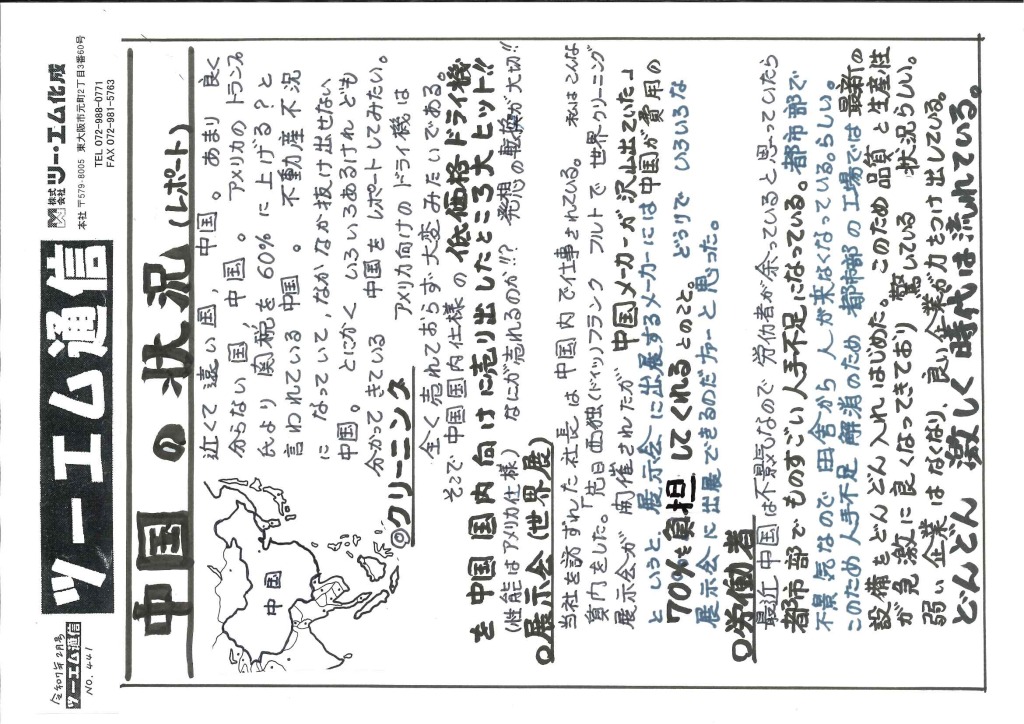 令和7年2月号
ツーエム通信
NO.441
ツーエム通信
株式会社 ツー・エム化成
本社 〒579-8005 東大阪市元町2丁目3番60号
TEL 072-988-0771
FAX 072-981-5763
中国の状況(レポート)
近くて遠い国、中国。あまり良く
分からない国、中国。アメリカのトランプ
氏より関税を60%に上げる?と
言われている中国。不動産不況
になっていて、なかなか抜け出せない
中国。とにかくいろいろあるけれども
分かってきている中国をレポートしてみたい。
中国
◎クリーニング
アメリカ向けのドライ機は
全く売れておらず大変みたいである。
そこで中国国内仕様の低価格ドライ機
を中国国内向けに売り出したところ大ヒット!!
(性能はアメリカ仕様) なにが売れるのか!!? 発想の転換が大切!!
○展示会(世界展)
当社を訪ずれた社長は中国内で仕事されている。私はこんな
質問をした。「先日西独(ドイツ)フランクフルトで世界クリーニング
展示会が開催されたが中国メーカーが沢山出ていた」
というと、展示会に出展するメーカーには中国が費用の
70%を負担してくれるとのこと。どうりでいろいろな
展示会に出展できるのだナーと思った。
○労働者
最近中国は不景気なので労働者が余っていると思っていたら
都市部でものすごい人手不足になっている。都市部で
不景気なので田舎から人が来なくなっているらしい。
このため人手不足解消のため都市部の工場では最新の
設備をどんどん入れはじめた。このため品質と生産性
が急激に良くなってきており驚いている状況らしい。
弱い企業はなくなり、良い企業が力をつけ出している。
どんどん激しく時代は流れている。